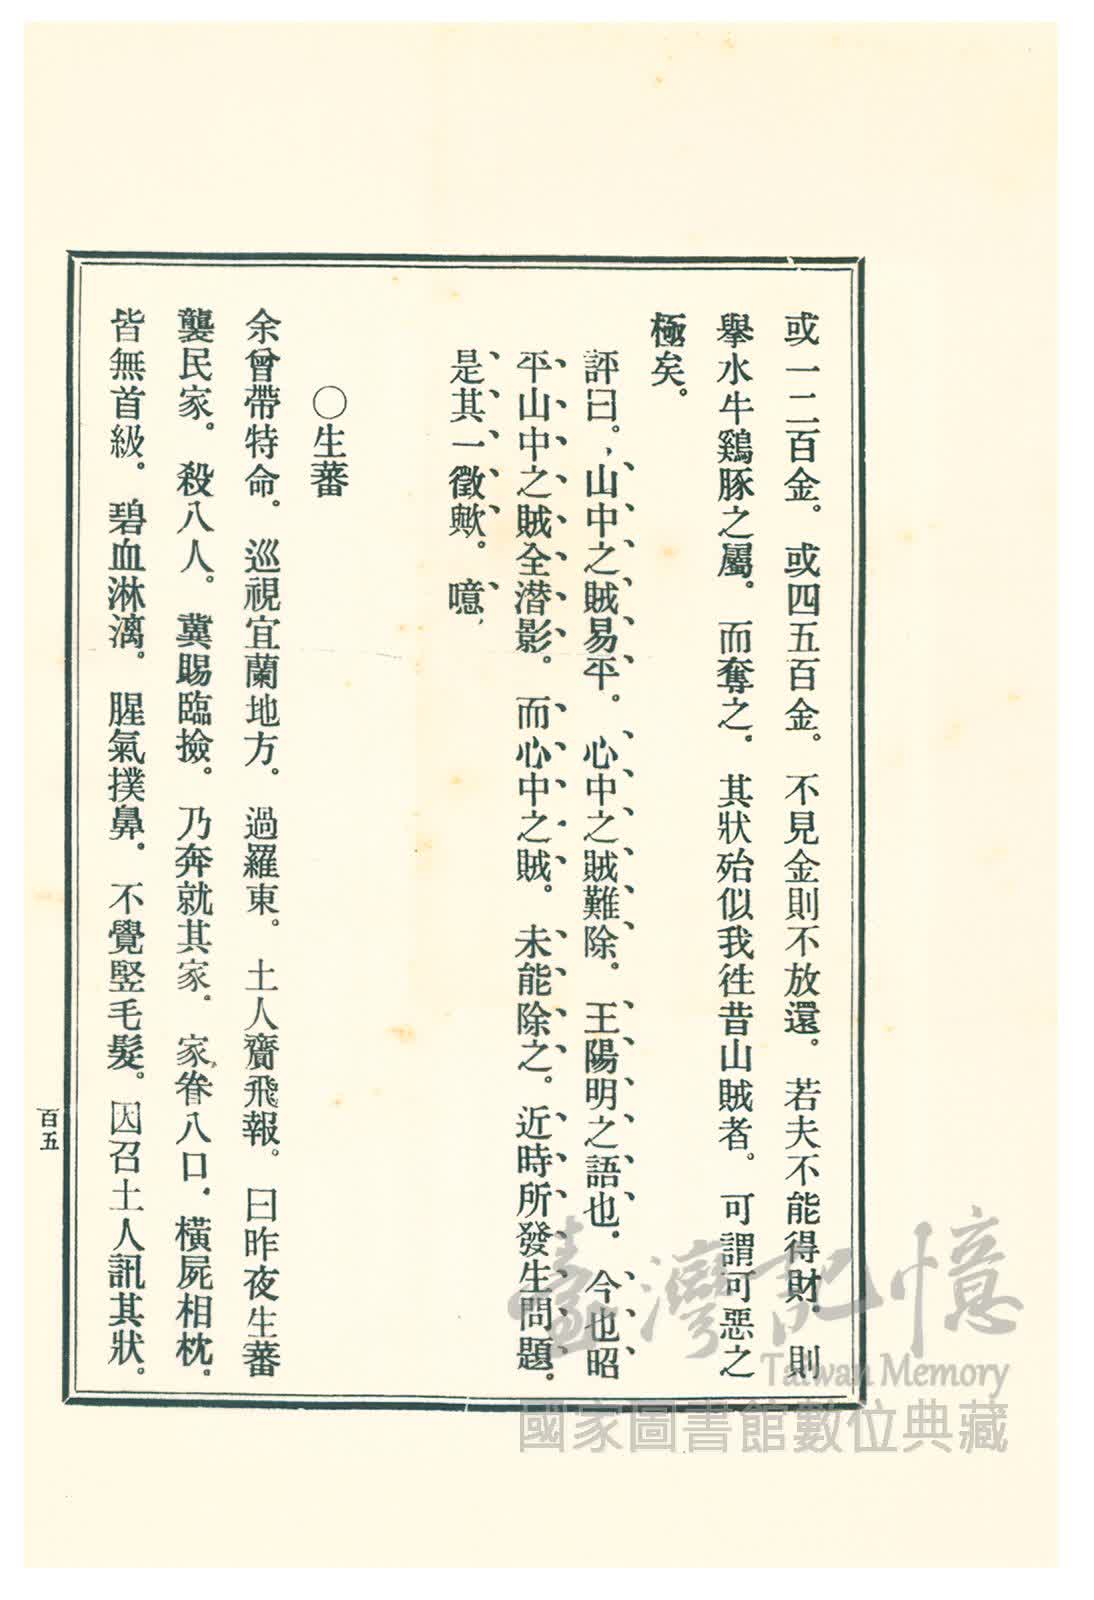 或一二百金。或四五百金。不見金則不放還。若夫不能得財。則
擧水牛鷄豚之屬。而奪之。其狀殆似我徃昔山賊者。可謂可惡之
極矣。
評曰。山中之賊易平。心中之賊難除。王陽明之語也。今也昭
平山中之賊全潜影。而心中之賊。未能除之。近時所發生問題。
是其一徵歟。噫、
○生蕃
余曾帶特命。巡視宜蘭地方。過羅東。土人齎飛報。曰昨夜生蕃
襲民家。殺八人。冀賜臨撿。乃奔就其家。家眷八口。橫屍相枕。
皆無首級。碧血淋漓。腥氣撲鼻。不覺竪毛髮。因召土人訊其狀。
百五
臺灣記憶
Taiwan Memory
國家圖書館數位典藏